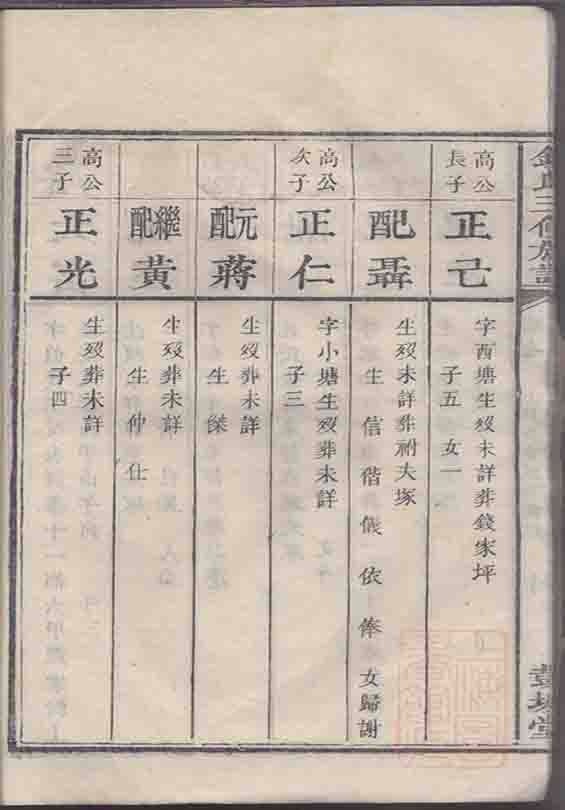 高公
長子
正己
字西塘生歿未詳葬錢家坪
子五女一
配聶
生歿未詳葬祔夫塚
生信偕儀依俸女歸謝
高公
次子
正仁
字小塘生歿葬未詳
子三
元配蔣
生歿葬未詳
生傑
繼配黃
生歿葬未詳
生仲仕
高公
三子
正光
生歿葬未詳
子四